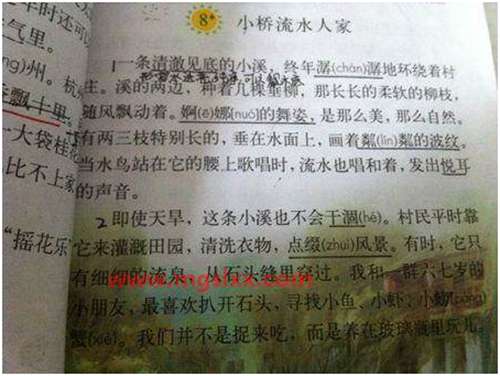 年时还可
气里。
ng)州。杭
飘十里
一大袋桂花
比不上家
“摇花乐”
8* 小桥流水人家
1一条清澈见底的小溪，终年潺(chán)潺地环绕着村
庄。溪的两边，种着几棵垂柳，那长长的柔软的柳枝，
随风飘动着。婀(ē)娜(nuó)的舞姿，是那么美，那么自然。
有两三枝特别长的，垂在水面上，画着粼(lín)粼的波纹。
当水鸟站在它的腰上歌唱时，流水也唱和着，发出悦耳
的声音。
2 即使天旱，这条小溪也不会干涸(hé)。村民平时靠
它来灌溉田园，清洗衣物，点缀(zhuì)风景。有时，它只
有细细的流泉，从石头缝里穿过。我和一群六七岁的
小朋友，最喜欢扒开石头，寻找小鱼、小虾、小螃(páng)
蟹(xiè)。我们并不是捉来吃，而是养在玻璃瓶里玩儿。